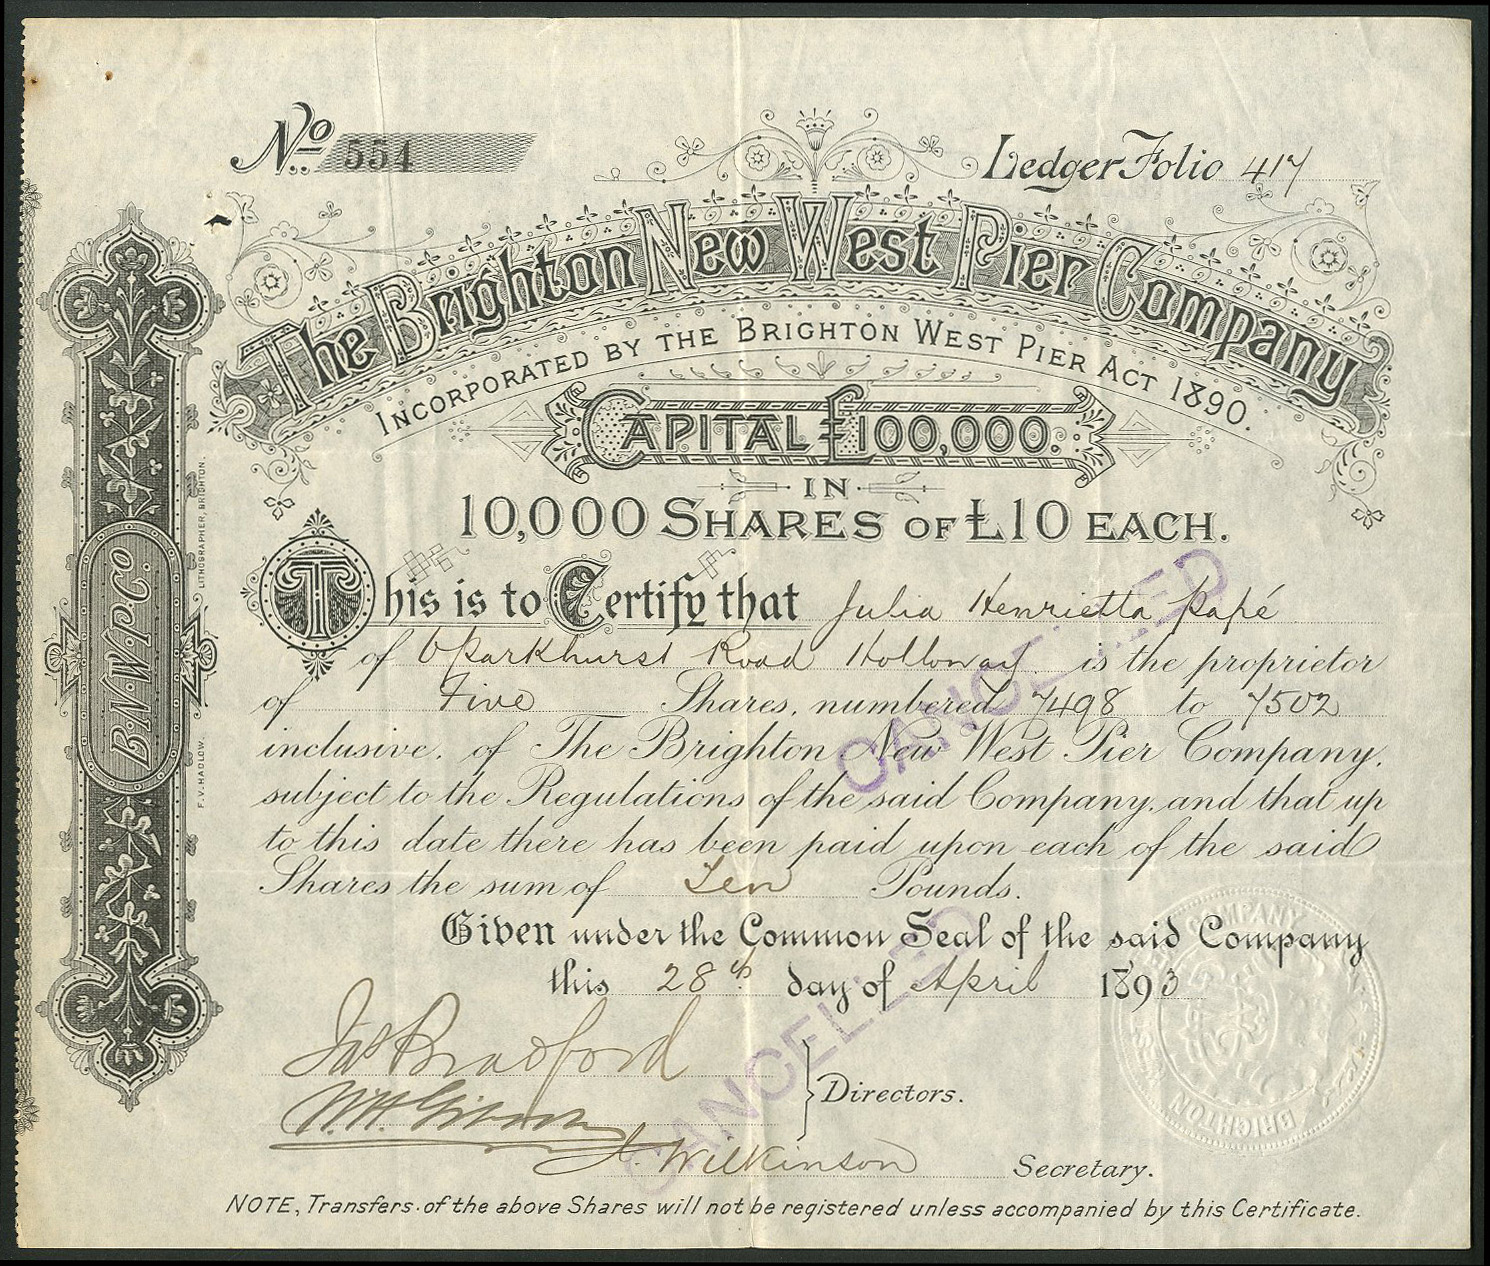 No 554
Ledger Folio 417
The Brighton New West Pier Company
Incorporated by the Brighton West Pier Act 1890.
Capital £100,000.
IN
10,000 Shares of £10 each.
This is to Certify that Julia Henrietta Papé
of 6 Parkhurst Road Holloway is the proprietor
of Five Shares, numbered 7498 to 7502
inclusive, of The Brighton New West Pier Company,
subject to the Regulations of the said Company, and that up
to this date there has been paid upon each of the said
Shares the sum of Ten Pounds.
Given under the Common Seal of the said Company
this 28th day of April 1893
Jas Bradford
W.H. Gibson
Directors.
J. Wilkinson Secretary.
NOTE, Transfers of the above Shares will not be registered unless accompanied by this Certificate.
B.N.W.P.Co.
F.V. HADLOW. LITHOGRAPHER, BRIGHTON.
CANCELLED
CANCELLED
COMPANY
BRIGHTON